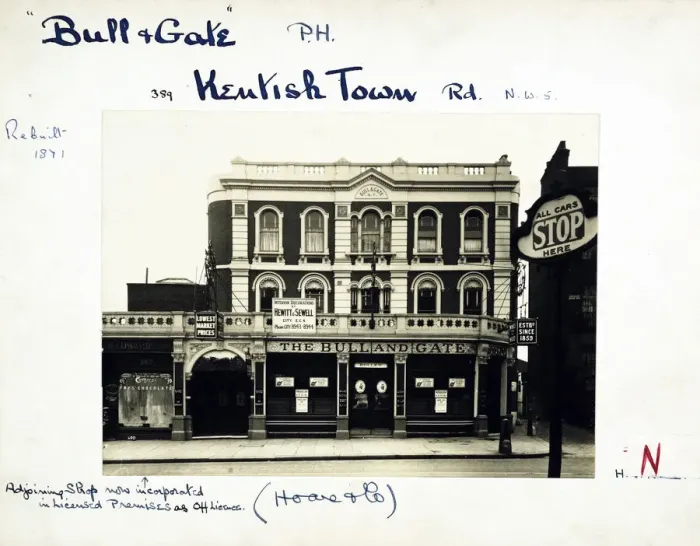 "Bull & Gate" P.H.
389 Kentish Town Rd. N.W.5.
Rebuilt
1871
BULL & GATE
ALL CARS
STOP
HERE
LOWEST
MARKET
PRICES
INTERIOR DECORATIONS
BY
HEWITT & SEWELL
CITY E.C.4
ESTBD
SINCE
1859
THE BULL AND GATE
CHOCOLATE
H. N
Adjoining Shop now incorporated
in Licensed Premises as Off Licence.
(Hoare & Co)